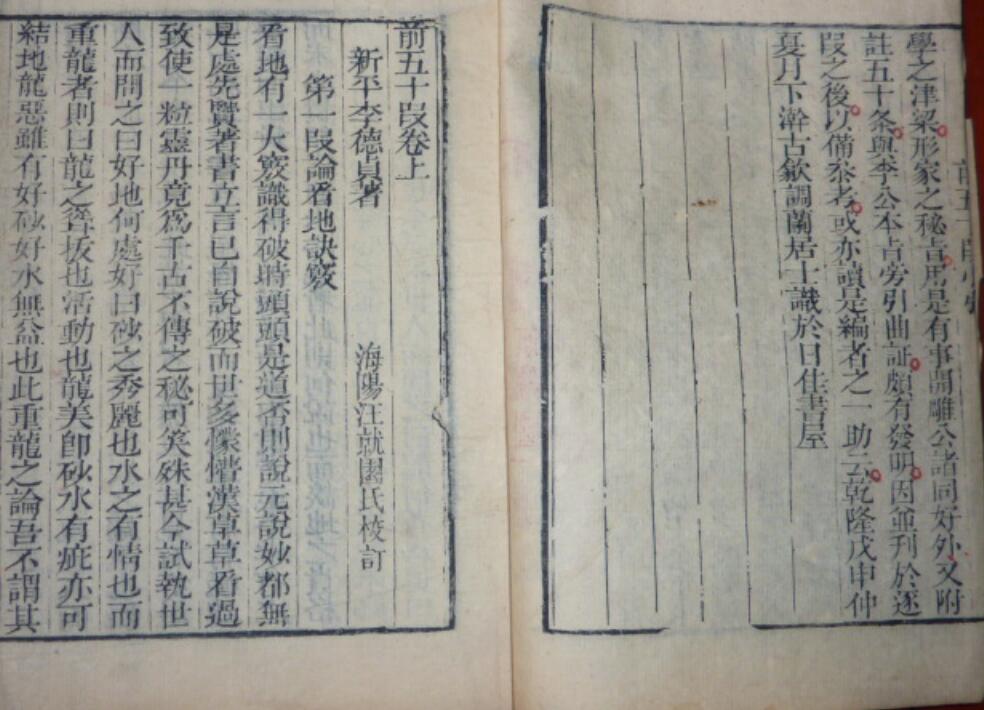 學之津梁形家之秘旨用是有事開雕公諸同好外又附
註五十条與李公本旨旁引曲証頗有發明因並刊於逐
段之後以備叅考或亦讀是編者之一助云乾隆戊申仲
夏月下澣古歙調蘭居士識於日佳書屋
前五十段卷上
新平李德貞著 海陽汪就園氏校訂
第一段論看地訣竅
看地有一大竅識得破時頭頭是道否則說元說妙都無
是處先賢著書立言已自說破而世多懞懵漢草草看過
致使一粒靈丹竟爲千古不傳之秘可笑殊甚今試執世
人而問之曰好地何處好曰砂之秀麗也水之有情也而
重龍者則曰龍之聳拔也活動也龍美卽砂水有疵亦可
結地龍惡雖有好砂好水無益也此重龍之論吾不謂其